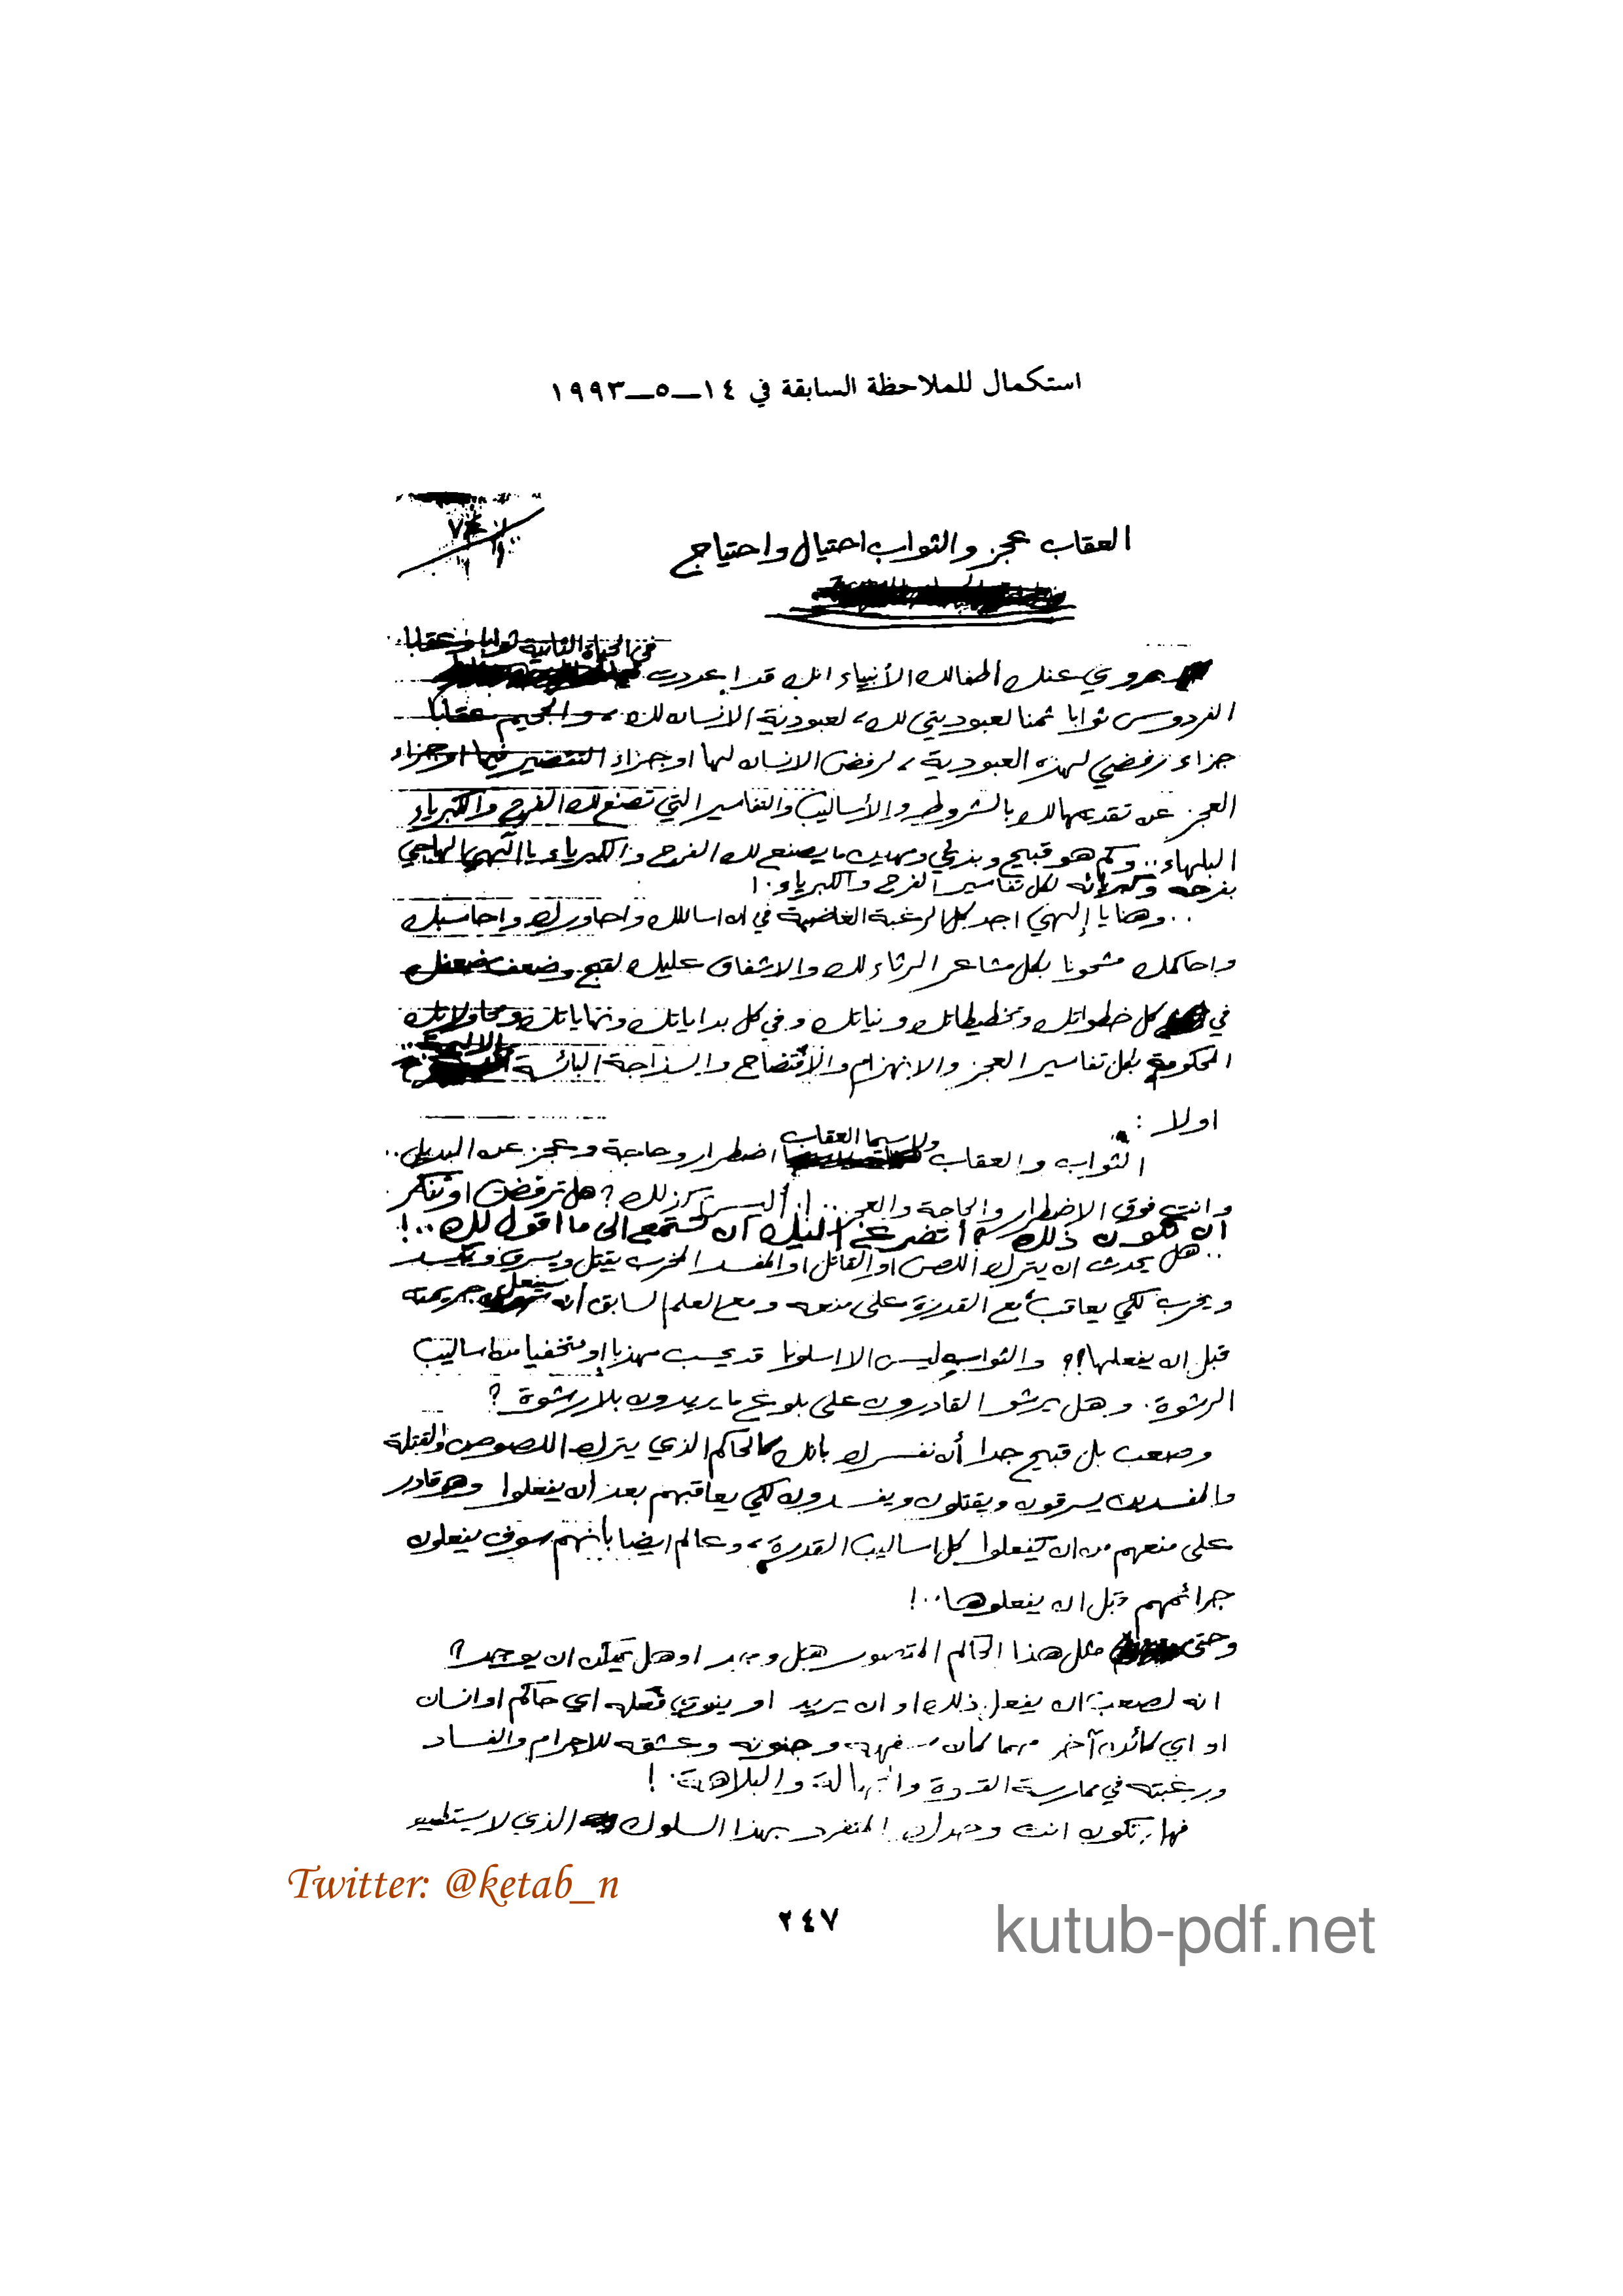 استكمال للملاحظة السابقة في ١٤ـ٥ـ١٩٩٣
العقاب عجز والثواب احتيال واحتياج
في الحياة الثانية ثوابا وعقابا
يروي عنك اطفالك الأنبياء انك قد اعددت
الفردوس ثوابا ثمنا لعبوديتي لك، لعبودية الانسان لك، والجحيم عقابا
جزاء رفضي لهذه العبودية، لرفض الانسان لها او جزاء التقصير فيها او جزاء
العجز عن تقديمها لك بالشروط والأساليب والتفاسير التي تصنع لك الفرح والكبرياء
البلهاء.. وكم هو قبيح وبذيء ومهين ما يصنع لك الفرح والكبرياء يا إلهي الهاجي
بفرحه وكبريائه لكل تفاسير الفرح والكبرياء.!
.. وهنا يا إلهي اجد كل الرغبة الغاضبة في ان اسائلك واحاورك واحاسبك
واحاكمك مشحونا بكل مشاعر الرثاء لك والاشفاق عليك لقبح وضعف ضعفك
في كل خطواتك وتخطيطاتك ونياتك وفي كل بداياتك ونهاياتك ومحاولاتك
المحكومة بكل تفاسير العجز والانهزام والافتضاح والسذاجة البائسة
اولا :
ولا سيما العقاب
الثواب والعقاب اضطرار وحاجة وعجز عن البديل..
وانت فوق الاضطرار والحاجة والعجز..! أليس كذلك؟ هل ترفض او تنكر
ان تكون ذلك؟ أتضرع إليك أن تستمع الى ما اقول لك..!
.. هل يحدث ان يترك اللص او القاتل او المفسد المخرب يقتل ويسرق ويفسد
ويخرب لكي يعاقب مع القدرة على منعه ومع العلم السابق أنه سيفعل جريمته
قبل ان يفعلها؟؟ والثواب ليس الا اسلوبا قد يحسب مهذبا او متخفيا من اساليب
الرشوة. وهل يرشو القادرون على بلوغ ما يريدون بلا رشوة؟
وصعب بل قبيح جدا أن نفسرك بانك كالحاكم الذي يترك اللصوص والقتلة
والمفسدين يسرقون ويقتلون ويفسدون لكي يعاقبهم بعد ان يفعلوا وهو قادر
على منعهم من ان يفعلوا بكل اساليب القدرة، وعالم ايضا بأنهم سوف يفعلون
جرائمهم قبل ان يفعلوها..!
وحتى مثل هذا الحاكم المتصور هل وجد او هل يمكن ان يوجد؟
انه لصعب ان يفعل ذلك او ان يريد او ينوي فعله اي حاكم او انسان
او اي كائن آخر مهما كان سفهه وجنونه وعشقه للاجرام والفساد
ورغبته في ممارسة القدرة والبلاهة.!
فهل تكون انت وحدك المنفرد بهذا السلوك الذي لا يستطيع
Twitter: @ketab_n
٢٤٧
kutub-pdf.net